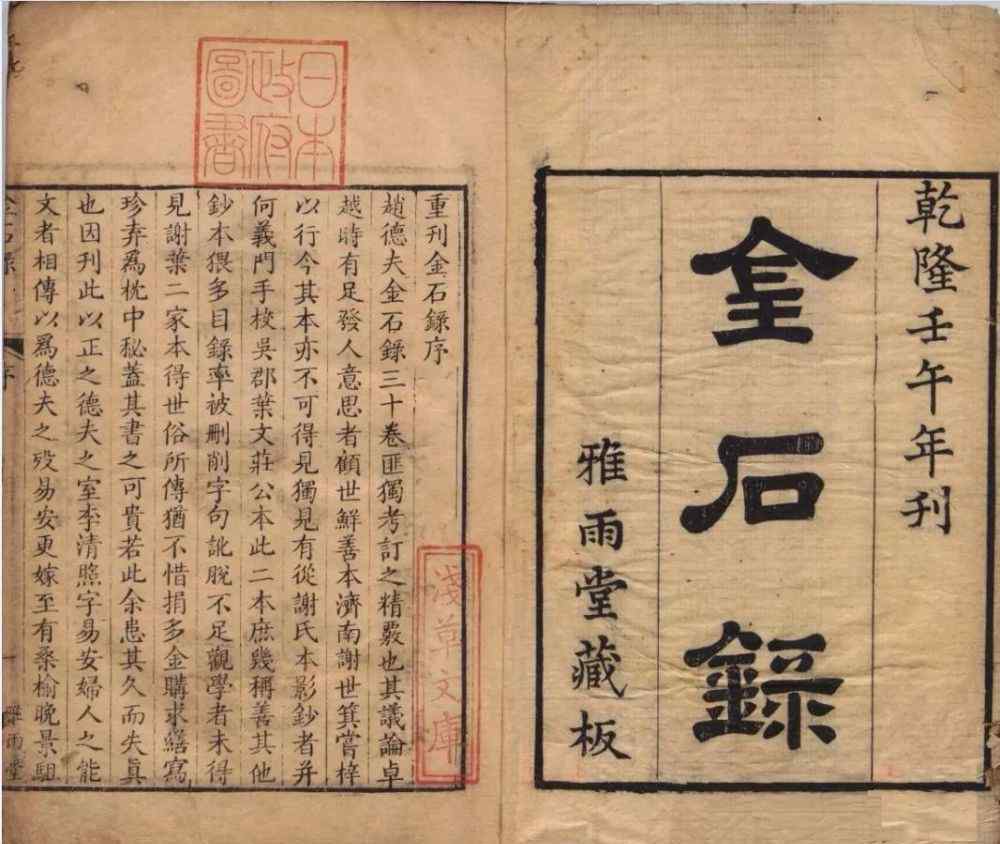 乾隆壬午年刊
金石錄
雅雨堂藏板
日本
政府
圖書
重刊金石錄序
趙德夫金石錄三十卷匪獨考訂之精覈也其議論卓
越時有足發人意思者顧世鮮善本濟南謝世箕嘗梓
以行今其本亦不可得見獨見有從謝氏本影鈔者并
何義門手校吳郡葉文莊公本此二本庶幾稱善其他
鈔本猥多目錄率被刪削字句訛脫不足觀學者未得
見謝葉二家本得世俗所傳猶不惜捐多金購求繕寫
珍弆爲枕中秘蓋其書之可貴若此余患其久而失眞
也因刊此以正之德夫之室李清照字易安婦人之能
文者相傳以爲德夫之歿易安更嫁至有桑榆晚景駔
淺草文庫
金石錄 序
一 雅雨堂